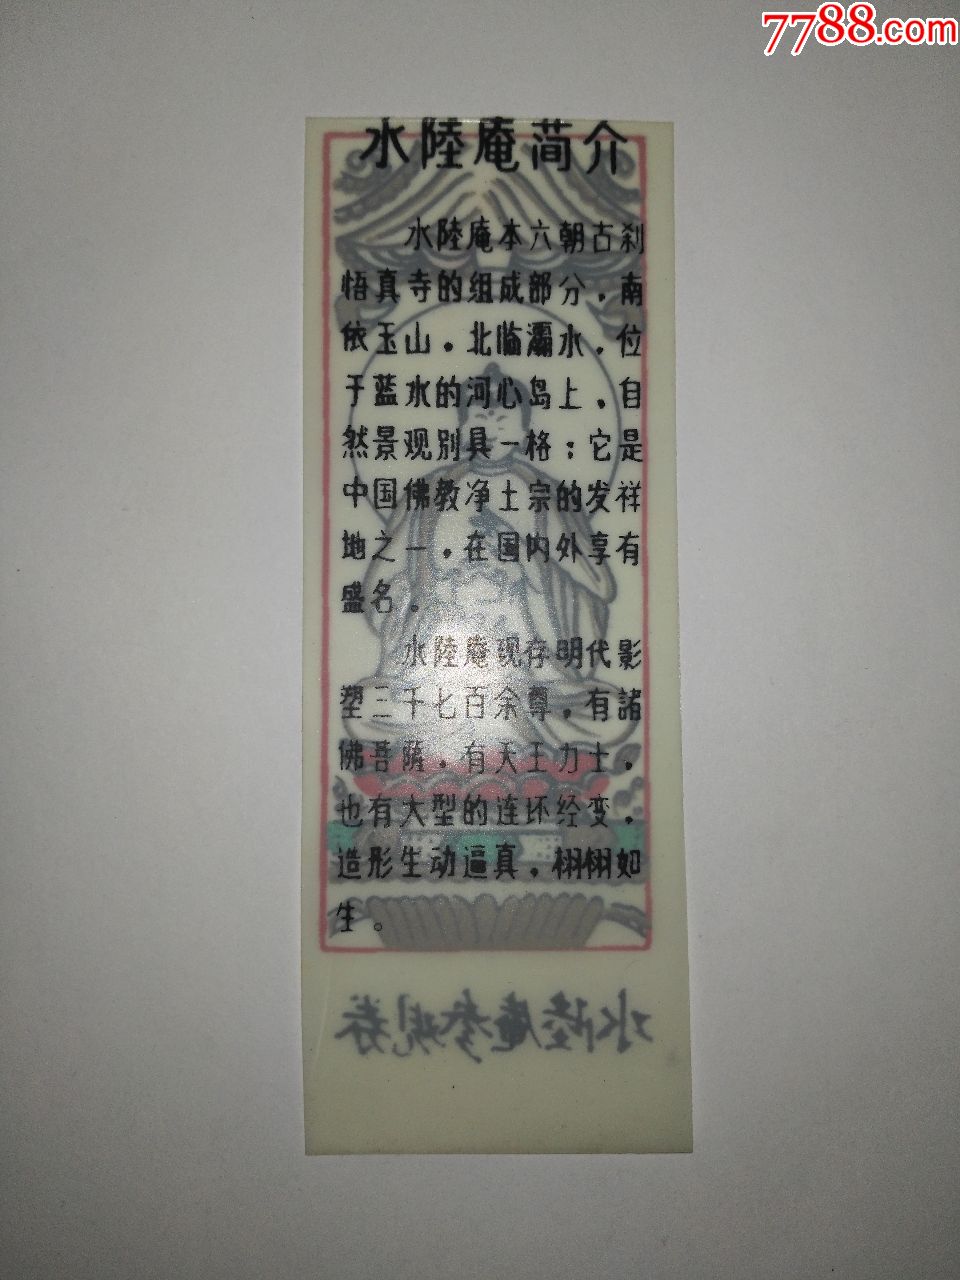 7788.com
水陸庵简介
水陸庵本六朝古刹
悟真寺的组成部分，南
依玉山，北临灞水，位
于蓝水的河心岛上，自
然景观别具一格；它是
中国佛教净土宗的发祥
地之一，在国内外享有
盛名。
水陸庵现存明代影
塑三千七百余尊，有諸
佛菩薩，有天王力士，
也有大型的连环经变，
造形生动逼真，栩栩如
生。
水陸庵参观券